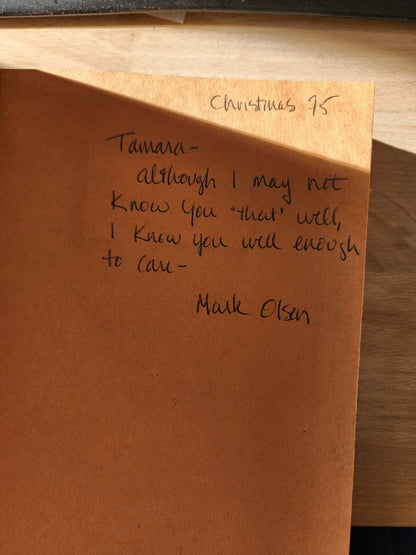 Christmas 75
Tamara-
although I may not
know you "that" well,
I know you well enough
to care-
Mark Olsen